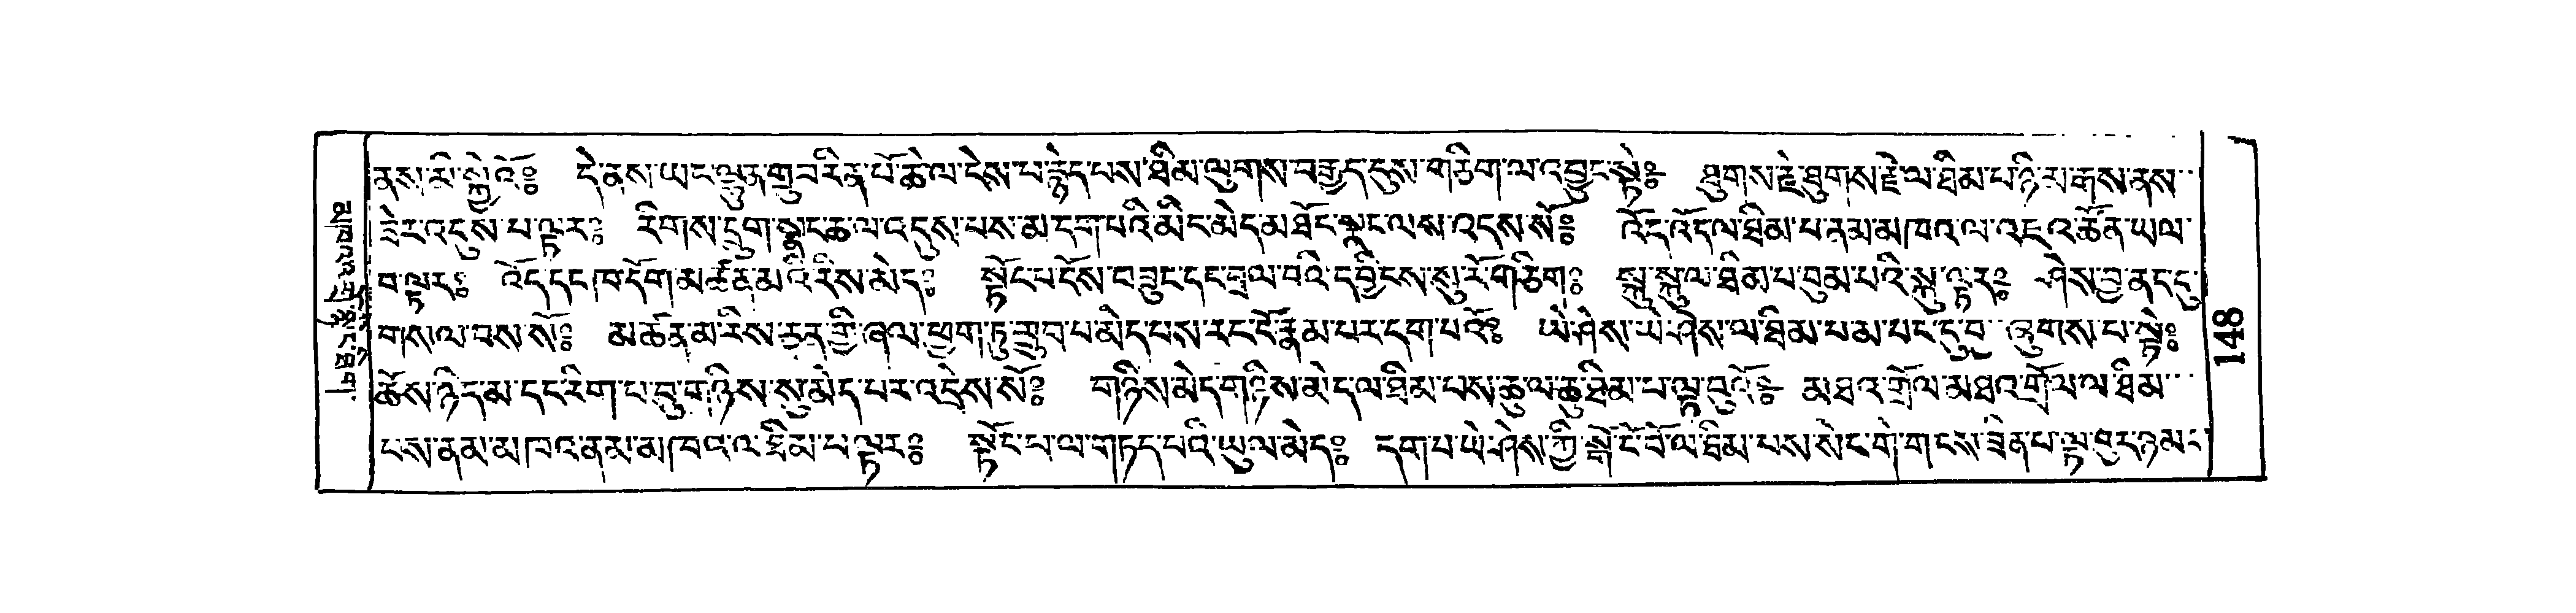 ནས་མི་སྐྱེ་འོ༔ དེ་ནས་ཡང་ལྷུན་གྲུབ་རིན་པོ་ཆེ་ལ་ངེས་པ་རྙེད་པས་ཐིམ་ལུགས་བརྒྱད་དུས་གཅིག་ལ་འབྱུང་སྟེ༔ ཐུགས་རྗེ་ཐུགས་རྗེ་ལ་ཐིམ་པ་ཉི་མ་རྒས་ནས་
ཟེར་འདུས་པ་ལྟར༔ རིགས་དྲུག་སྣང་ཆ་ལ་འདུས་པས་མ་དག་པའི་མིང་མེད་མ་ཐོང་སྣང་ལས་འདས་སོ༔ འོད་འོད་ལ་ཐིམ་པ་ནམ་མཁའ་ལ་འཇའ་ཚོན་ཡལ་
བ་ལྟར༔ འོད་དང་ཁ་དོག་མཚན་མའི་རིས་མེད༔ སྟོང་པ་དོས་བཟུང་དང་བྲལ་བའི་དབྱིངས་སུ་རོ་གཅིག༔ སྐུ་སྐུ་ལ་ཐིམ་པ་བུམ་པའི་སྐུ་ལྟར༔ ཤེས་བྱ་ནང་དུ་
གསལ་བས་སོ༔ མཚན་མ་རིས་ཅན་གྱི་ཞལ་ཕྱག་ཏུ་གྲུབ་པ་མེད་པས་རང་ངོ་རྣམ་པར་དག་པའོ༔ ཡེ་ཤེས་ཡེ་ཤེས་ལ་ཐིམ་པ་མ་པང་དུ་བུ་ཞུགས་པ་སྟེ༔
ཆོས་ཉིད་མ་དང་རིག་པ་བུ་གཉིས་སུ་མེད་པར་འདྲེས་སོ༔ གཉིས་མེད་གཉིས་མེད་ལ་ཐིམ་པས་ཆུ་ལ་ཆུ་ཐིམ་པ་ལྟ་བུའོ༔ མཐའ་གྲོལ་མཐའ་གྲོལ་ལ་ཐིམ་
པས་ནམ་མཁའ་ནམ་མཁའ་ལ་ཐིམ་པ་ལྟར༔ སྟོང་པ་ལ་གཏད་པའི་ཡུལ་མེད༔ དག་པ་ཡེ་ཤེས་ཀྱི་སྒོ་ངོ་བོ་ལ་ཐིམ་པས་སེང་གེ་གངས་ཟིན་པ་ལྟ་བུར་ཉམ་ང་
841